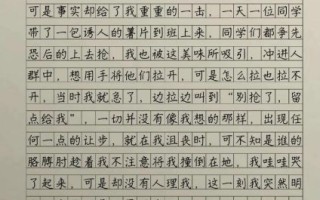 可是事实却给了我重重的一击，一天一位同学
带了一包诱人的薯片到班上来，同学们都争先
恐后的上去抢，我也被这美味所吸引，冲进人
群中，想用手将他们拉开，可是怎么拉也拉不
开，当时我就急了，边拉边叫到“别抢了，留
点给我”，一切并没有像我想的那样，出现任
何一点的让步，就在我沮丧时，可不知是谁的
胳膊肘趁着我不注意将我撞倒在地，我哇哇哭
了起来，可是却没有人理我，这一刻我突然明